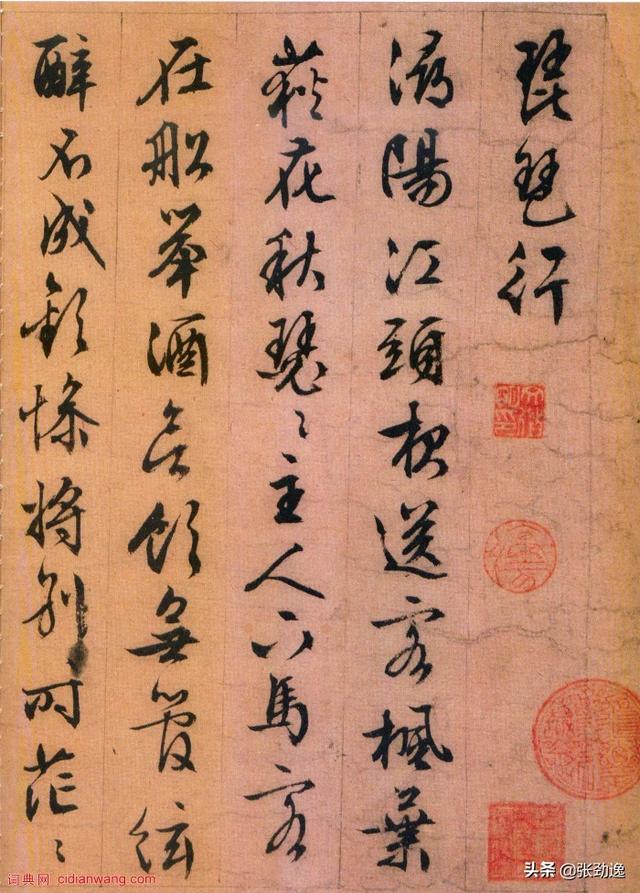 琵琶行
潯陽江頭夜送客楓葉
荻花秋瑟〻主人下馬客
在船舉酒欲飲無管絃
醉不成歡慘將別時茫〻
词典网 cidianwang.com
头条 @张劲逸